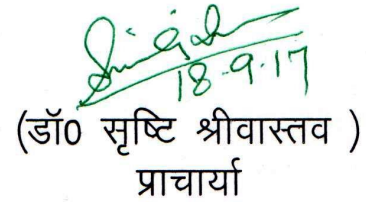 18.9.17
(डॉ0 सृष्टि श्रीवास्तव )
प्राचार्या